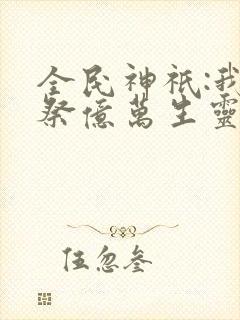 全民神祇:我
祭億萬生靈
伍忽叁